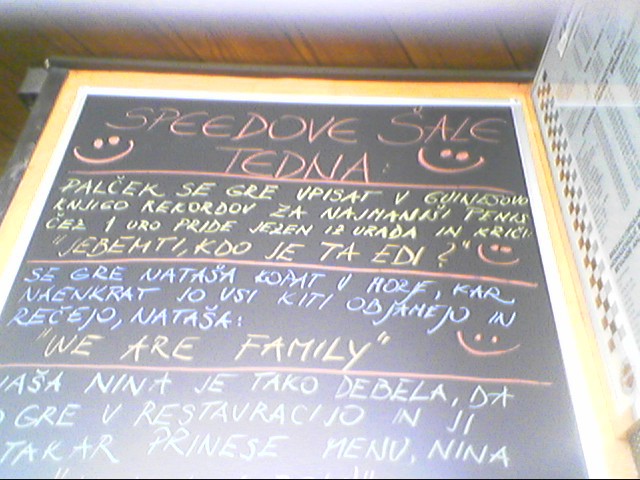 SPEEDOVE ŠALE
TEDNA:
PALČEK SE GRE UPISAT V GUINESOVO
KNJIGO REKORDOV ZA NAJMANJŠI PENIS
ČEZ 1 URO PRIDE JEZEN IZ URADA IN KRIČI:
"JEBEMTI, KDO JE TA EDI?"
SE GRE NATAŠA KOPAT V MORJE, KAR
NAENKRAT JO VSI KITI OBJAMEJO IN
REČEJO, NATAŠA:
"WE ARE FAMILY"
NAŠA NINA JE TAKO DEBELA, DA
KO GRE V RESTAVRACIJO IN JI
NATAKAR PRINESE MENU, NINA